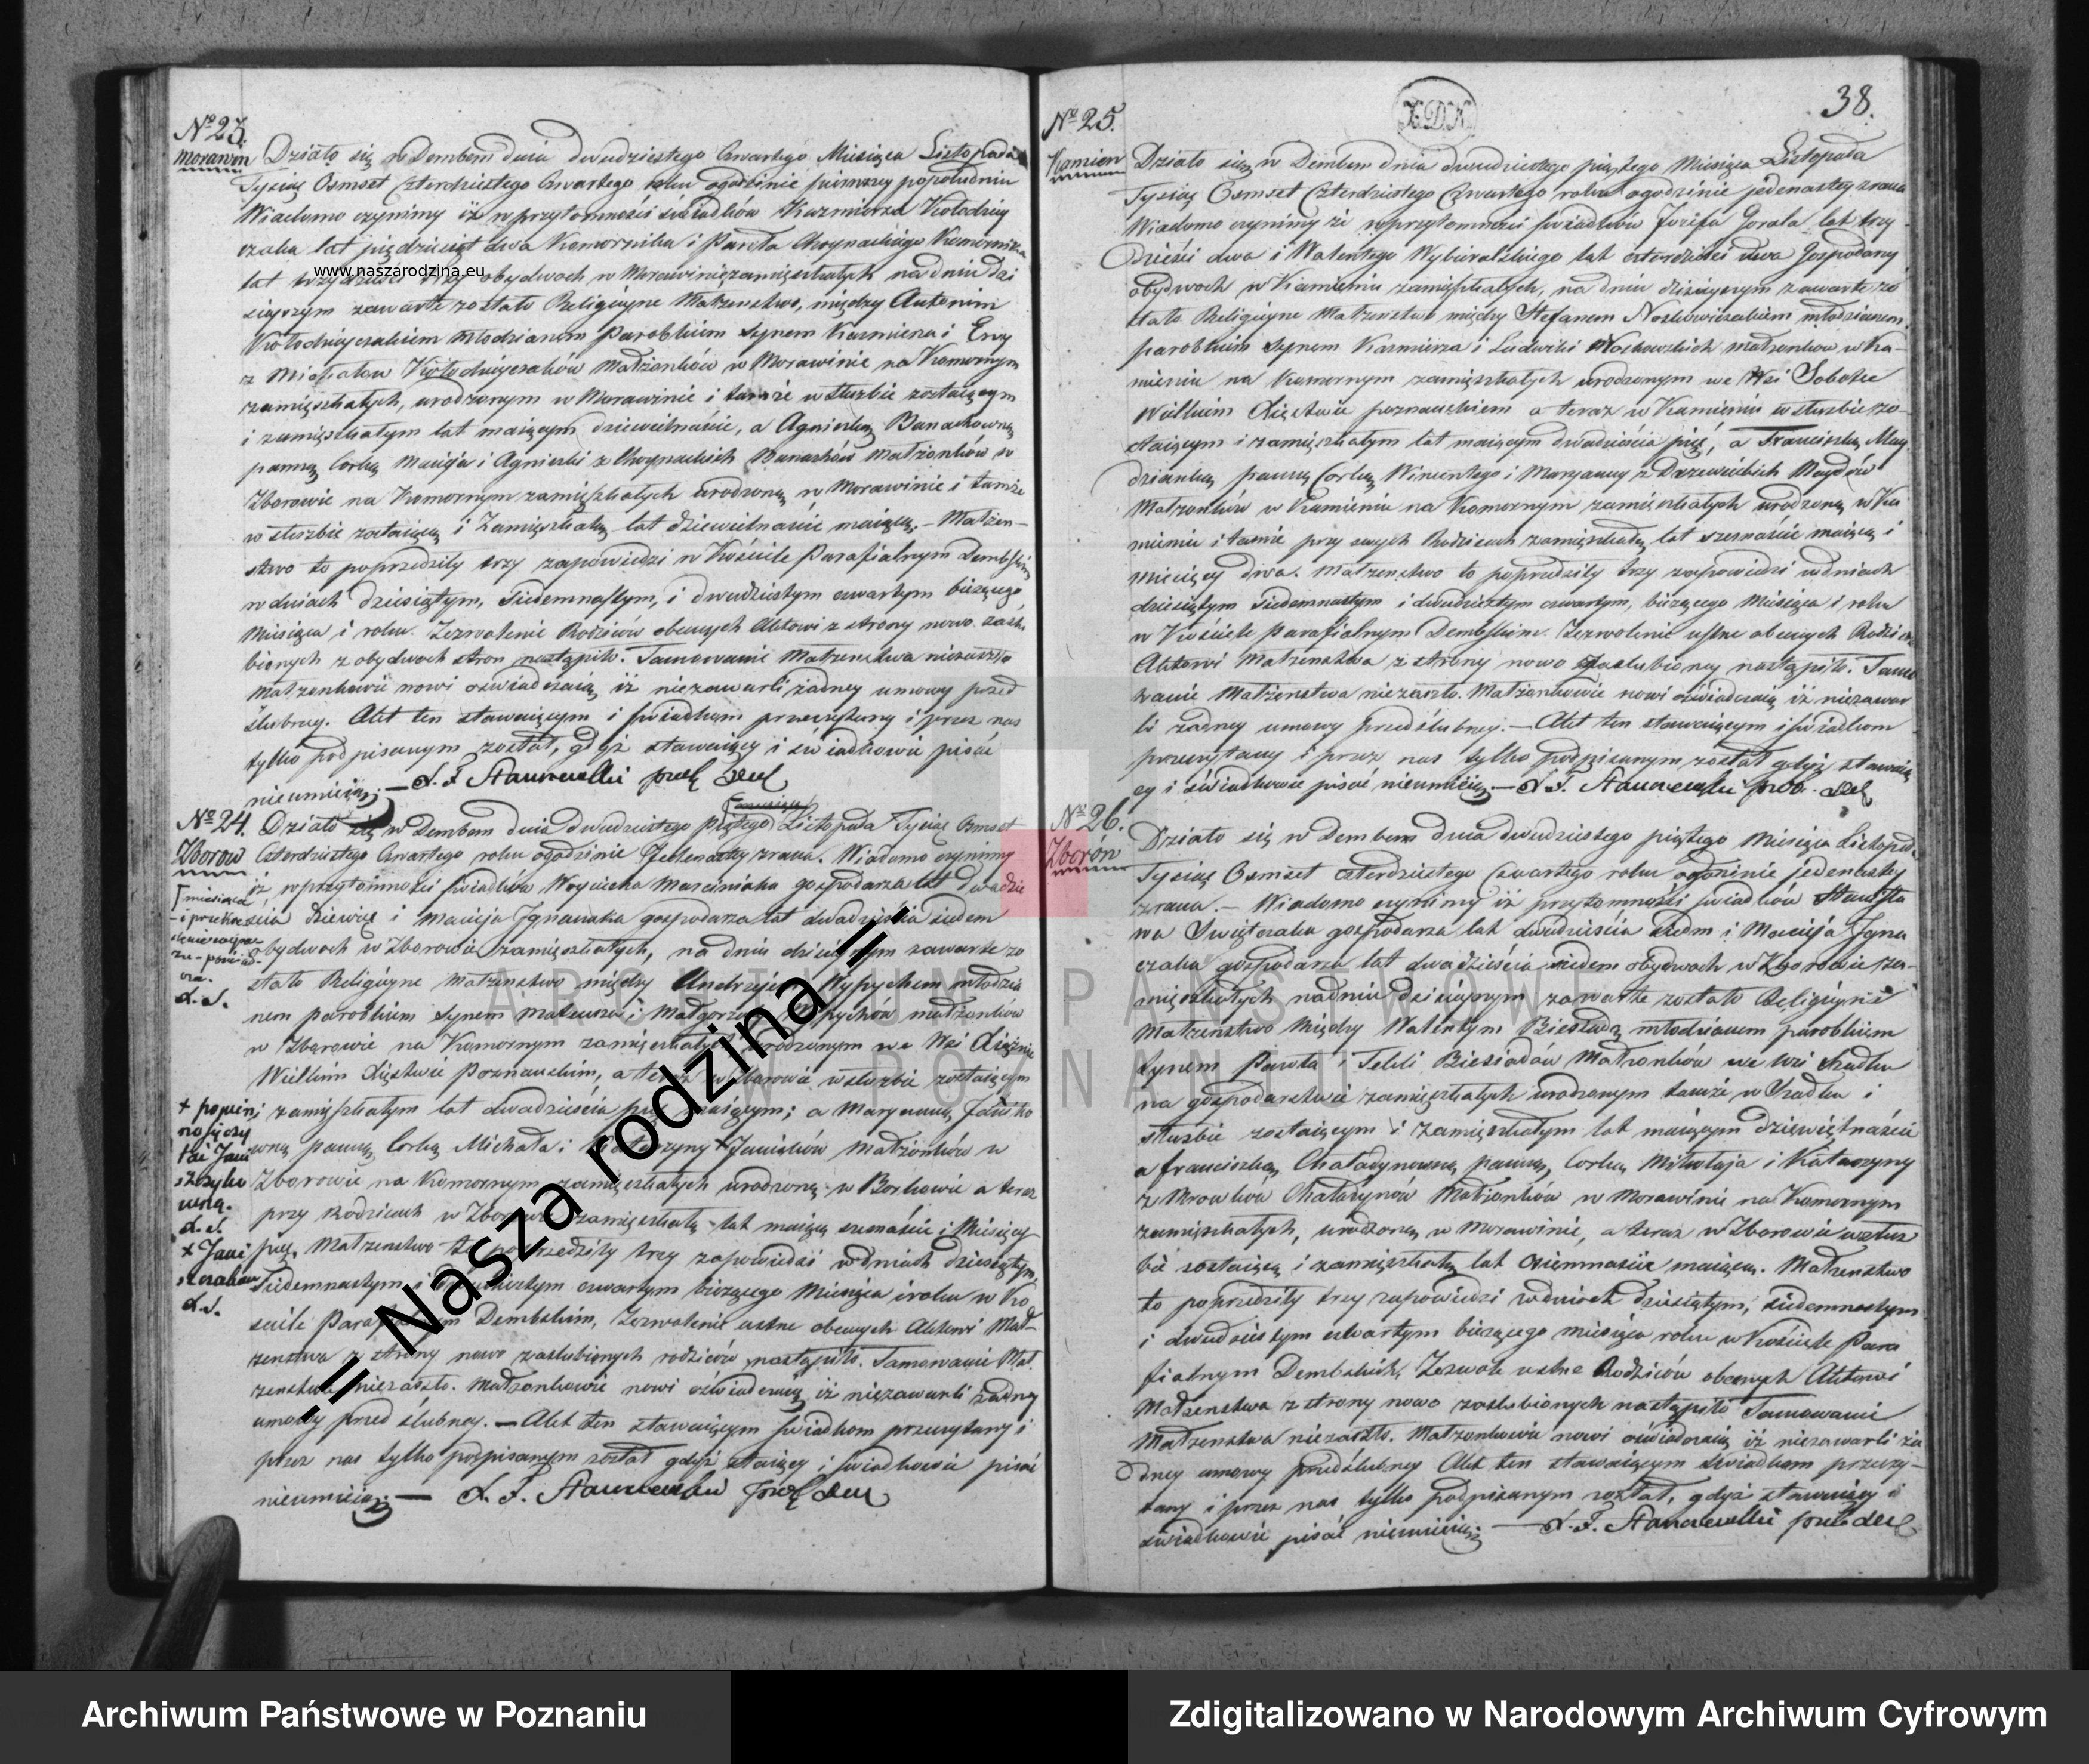 № 23.
Morawin
Działo się w Dembem dnia dwudziestego czwartego Miesiąca Listopada
Tysiąc Osmset Czterdziestego Czwartego roku ogodzinie pierwszey popołudniu
Wiadomo czynimy iż w przytomności świadków Kazmierza Kołodziey
czaka lat pięćdziesiąt dwa Komornika i Pawła Choynackiego Komornika
lat trzydzieści trzy obydwoch w Morawinie zamięszkałych na dniu dzi
sieyszym zawarte zostało Religiyne Małzenstwo, między Antonim
Kołodzieyczakiem Młodzianem Parobkiem Synem Kazmierza i Ewy
z Michałow Kołodzieyczaków Małżonków w Morawinie na Komornym
zamięszkałych, urodzonym w Morawinie i tamże w służbie zostaiącym
i zamięszkałym lat maiącym dziewietnaście, a Agnieszką Banachowną
panną Corką Macieja i Agnieszki z Choynackich Banachów Małżonków w
Zborowie na Komornym zamięszkałych urodzoną w Morawinie i tamże
w służbie zostaiącą i Zamięszkałą lat dziewietnaście maiącą. – Małżen–
stwo to poprzedziły trzy zapowiedzi w Kościele Parafialnym Dembskim
w dniach dziesiątym, siedemnastym, i dwudziestym czwartym bieżącego
Miesiąca i roku. Zezwolenie Rodziców obecnych Aktowi z strony nowo zaślu
bionych z obydwoch stron nastąpiło. Tamowanie Małzenstwa niezaszło
Małzonkowie nowi oświadczaią iż niezawarli żadney umowy przed
ślubney. Akt ten stawaiącym i świadkom przeczytany i przez nas
tylko podpisanym został, gdyż stawaiący i świadkowie pisać
nieumieią. —
№ 24.
Zborow
Działo się w Dembem dnia dwudziestego piątego Listopada Tysiąc Osmset
Czterdziestego Czwartego roku ogodzinie Jedenastey zrana. Wiadomo czynimy
iż w przytomności świadków Woyciecha Marciniaka gospodarza lat dwadzie
ścia dziewięć i Macieja Ignaczaka gospodarza lat dwadzieścia siedem
obydwoch w Zborowie zamięszkałych, na dniu dzisieyszym zawarte zo
stało Religiyne Małzenstwo między Andrzejem Wypychem młodzia
nem parobkiem Synem Mateusza i Małgorzaty Wypychów małżonków
w Zborowie na Komornym zamięszkałych urodzonym we Wsi
Wielkim Xięstwie Poznanskim, a teraz w Zborowie w służbie zostaiącym
i zamięszkałym lat dwadzieścia pięć maiącym; a Maryanną
panną Corką Michała i Katarzyny + Małżonków w
Zborowie na Komornym zamięszkałych urodzoną w Borkowie a teraz
przy Rodzicach w Zborowie zamięszkałą lat maiącą i Miesięcy
pięć. Małzenstwo to poprzedziły trzy zapowiedzi w dniach dziesiątym,
Siedemnastym i dwudziestym czwartym bieżącego Miesiąca i roku w Ko
ściele Parafialnym Dembskim, Zezwolenie ustne obecnych Aktowi Mał–
zenstwa z strony nowo zaślubionych rodziców nastąpiło. Tamowanie Mał.
zenstwa niezaszło. Małzonkowie nowi oświadczaią iż niezawarli żadney
umowy przed ślubney. — Akt ten stawaiącym świadkom przeczytany i
przez nas tylko podpisanym został gdyż staiący i świadkowie pisać
nieumieią. —
38.
№ 25.
Kamien
Działo się w Dembem dnia dwudziestego piątego Miesiąca Listopada
Tysiąc Osmset Czterdziestego Czwartego roku ogodzinie jedenastey zrana
Wiadomo czynimy że w przytomności świadków Jozefa Gorala lat trzy
dzieści dwa i Walentego Wybieralskiego lat czterdzieści dwa Gospodarzy
obydwoch w Kamieniu zamięszkałych, na dniu dzisieyszym zawarte zo
stało Religiyne Małzenstwo między Stefanem młodzianem
parobkiem Synem Kazmierza i Ludwiki małzonkow w Ka–
mieniu na Komornym zamięszkałych urodzonym we Wsi Sobotce
Wielkim Xięstwie poznanskiem a teraz w Kamieniu w służbie zo–
staiącym i zamięszkałym lat maiącym dwadzieścia pięć, a Franciszką Mag
dzianką panną Corką Wincentego i Maryanny z Drzewieckich Magdów
Małzonków w Kamieniu na Komornym zamięszkałych urodzoną w Ka
mieniu i tamże przy swych Rodzicach zamięszkałą lat szesnaście maiącą i
miesięcy dwa. Małzenstwo to poprzedziły trzy zapowiedzi w dniach
dziesiątym siedemnastym i dwudziestym czwartym, bieżącego Miesiąca i roku
w Kościele parafialnym Dembskim. Zezwolenie ustne obecnych Rodziców
Aktowi Małzenstwa z strony nowo Zaslubioney nastąpiło. Tamo
wanie Małżenstwa niezaszło. Małżonkowie nowi oświadczaią iż niezawar
li żadney umowy przedślubney. — Akt ten stawaiącym i świadkom
przeczytany i przez nas tylko podpisanym został gdyż stawaią
cy i świadkowie pisać nieumieią —
№ 26.
Zborow
Działo się w Dembem dnia dwudziestego piątego Miesiąca Listopada
Tysiąc Osmset czterdziestego Czwartego roku ogodzinie jedenastey
zrana. – Wiadomo czynimy iż przytomności świadków Stanisła
wa gospodarza lat dwadzieścia siedm i Macieja Igna
czaka gospodarza lat dwadzieścia siedem obydwoch w Zborowie za–
mięszkałych na dniu dzisieyszym zawarte zostało Religiyne
Małzenstwo Między Walentym Biesiadą młodzianem parobkiem
Synem Pawła i Tekli Biesiadów Małzonków we wsi Szadku
na gospodarstwie zamięszkałych urodzonym tamże w Szadku i
służbie zostaiącym i zamięszkałym lat maiącym dziewiętnaście
a Franciszką Chaładynowną panną, Corką Mikołaja i Katarzyny
z Mrowków Chaładynów Małżonków w Morawinie na Komornym
zamięszkałych, urodzoną w Morawinie, a teraz w Zborowie w służ
bie zostaiącą i zamięszkałą lat osiemnaście maiącą. Małzenstwo
to poprzedziły trzy zapowiedzi w dniach dziesiątym, siedemnastym
i dwudziestym czwartym bieżącego miesiąca roku w Kościele Para
fialnym Dembskich, Zezwole ustne Rodziców obecnych Aktowi
Małzenstwa z strony nowo zaślubionych nastąpiło Tamowanie
Małzenstwa niezaszło. Małzonkowie nowi oświadczaią iż niezawarli ża
dney umowy przedślubney Akt ten stawaiącym Swiadkom przeczy–
tany i przez nas tylko podpisanym został, gdyż stawaiący i
świadkowie pisać nieumieią. —
www.naszarodzina.eu
-= Nasza rodzina =-
ARCHIWUM PAŃSTWOWE
W POZNANIU
Archiwum Państwowe w Poznaniu
Zdigitalizowano w Narodowym Archiwum Cyfrowym